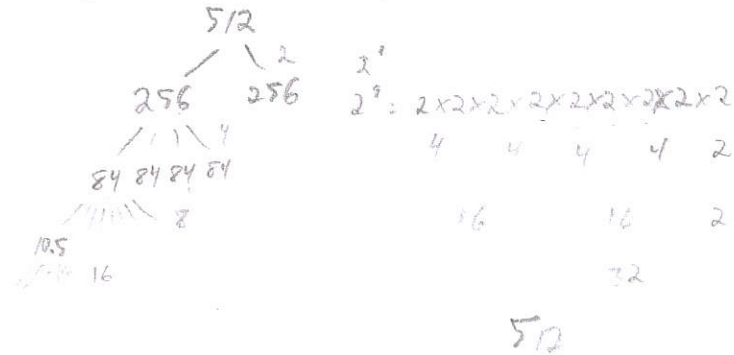 512
2
256 256
4
84 84 84 84
8
10.5
16
2⁹ = 2×2×2×2×2×2×2×2×2
4 4 4 4 2
16 16 2
32
512